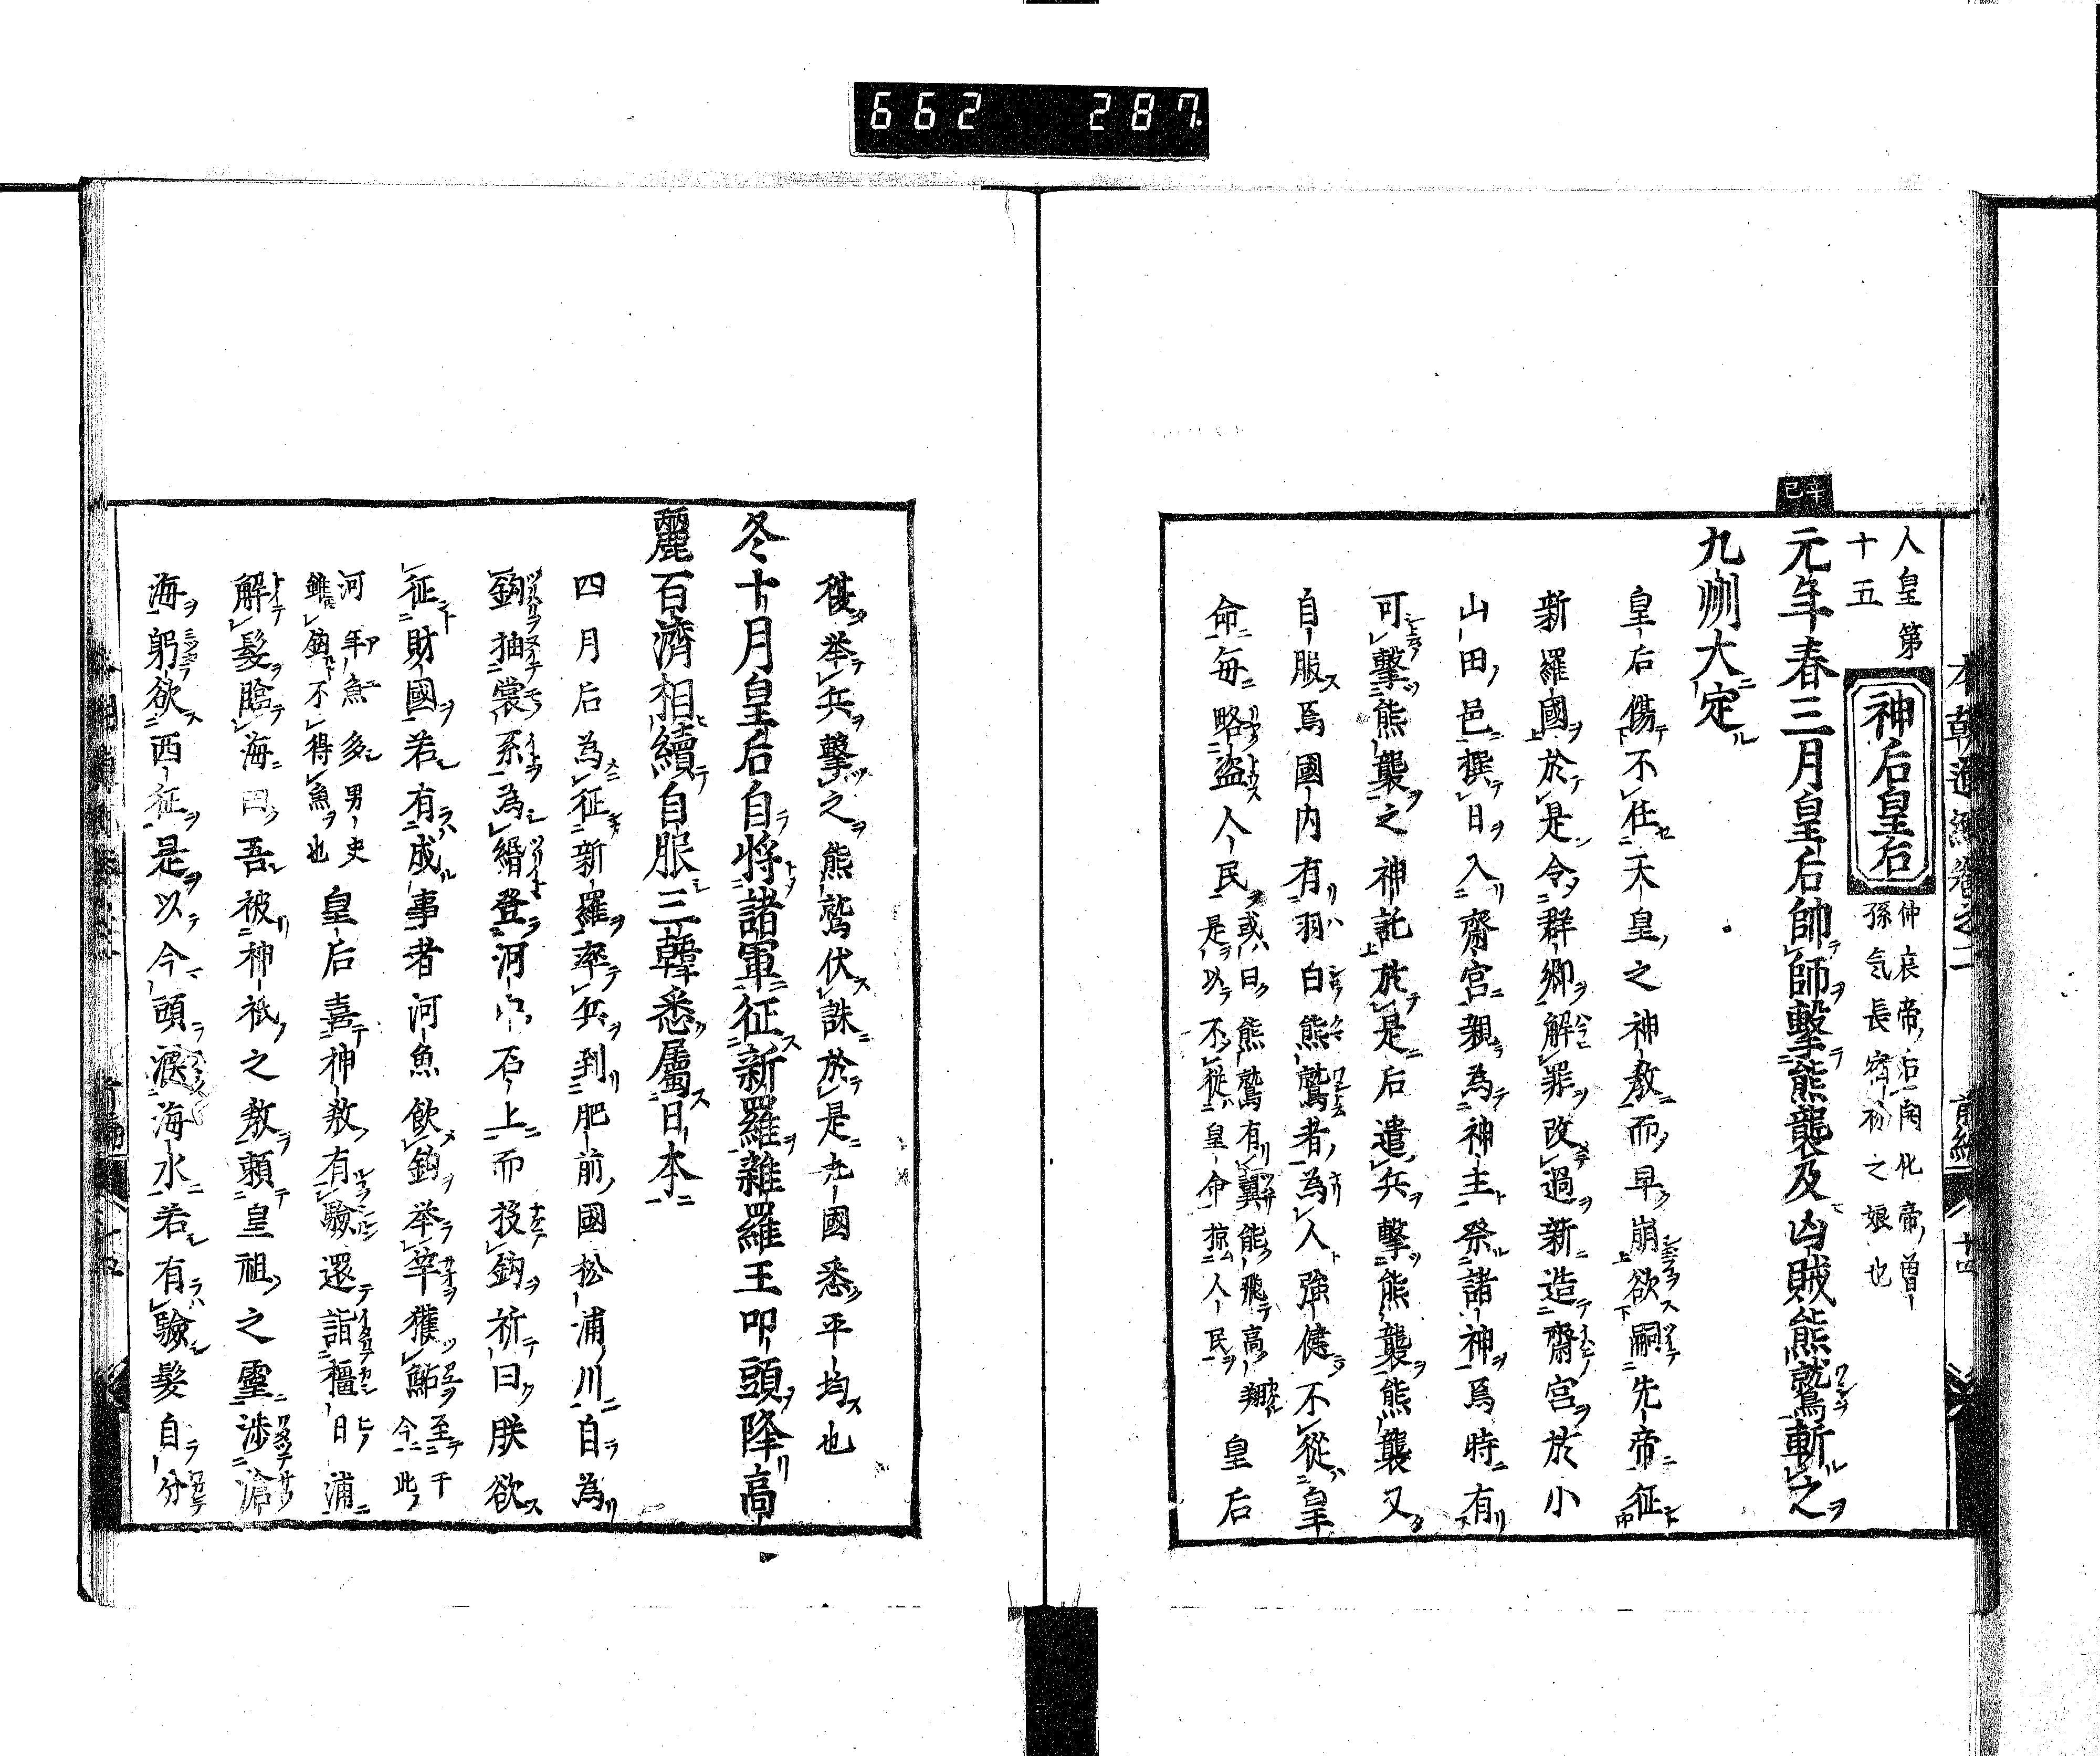 662 287.
本朝通鑑卷之二 前編 十四
辛巳
人皇第
十五
神后皇后
仲哀帝后開化帝曽
孫気長宿祢之娘也
元年春三月皇后帥師擊熊襲及凶賊熊鷲斬之
九州大定
皇后傷不任天皇之神教而早崩欲嗣先帝征
新羅國於是令群卿解罪改過新造齋宮於小
山田邑撰日入齋宮親為神主祭諸神焉時有
可擊熊襲之神託於是后遣兵擊熊襲熊襲又
自服焉國内有羽白熊鷲者為人強健不從皇
命每略盜人民
或曰熊鷲有翼能飛高翔
是以不從皇命掠人民
皇后
復举兵擊之熊鷲伏誅於是九國悉平均也
冬十月皇后自将諸軍征新羅雜羅王叩頭降高
麗百濟相續自服三韓悉屬日本
四月后為征新羅率兵到肥前國松浦川自為
鉤抽裳糸為緡登河中石上而投鉤祈曰朕欲
征財國若有成事者河魚飲鉤举竿獲鮎
至于
今此
河年魚多男史
雖鉤不得魚也
皇后喜神教有驗還詣橿日浦
解髮臨海曰吾被神祇之教頼皇祖之霊渉滄
海躬欲西征是以今頭滌海水若有驗髮自分